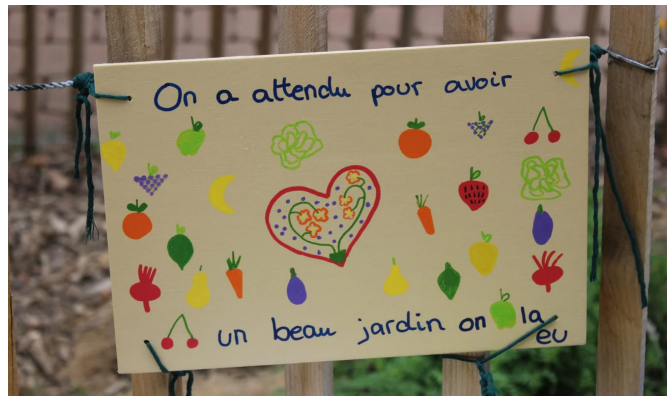 On a attendu pour avoir
un beau jardin on la
eu